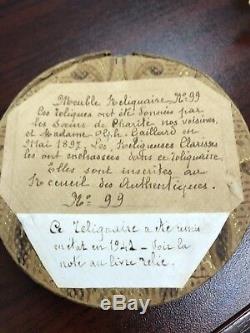 Meuble Reliquaire, N° 99
Ces Reliques ont été données par
les Sœurs de Charité nos voisines,
et Madame Alph. Gaillard en
Mai 1897. Les Religieuses Clarisses
les ont enchassées dans ce reliquaire.
Elles sont inscrites au
Recueil des Authentiques.
N° 99
Ce Reliquaire a été remis
en état en 1942 - Voir la
note au livre relié.